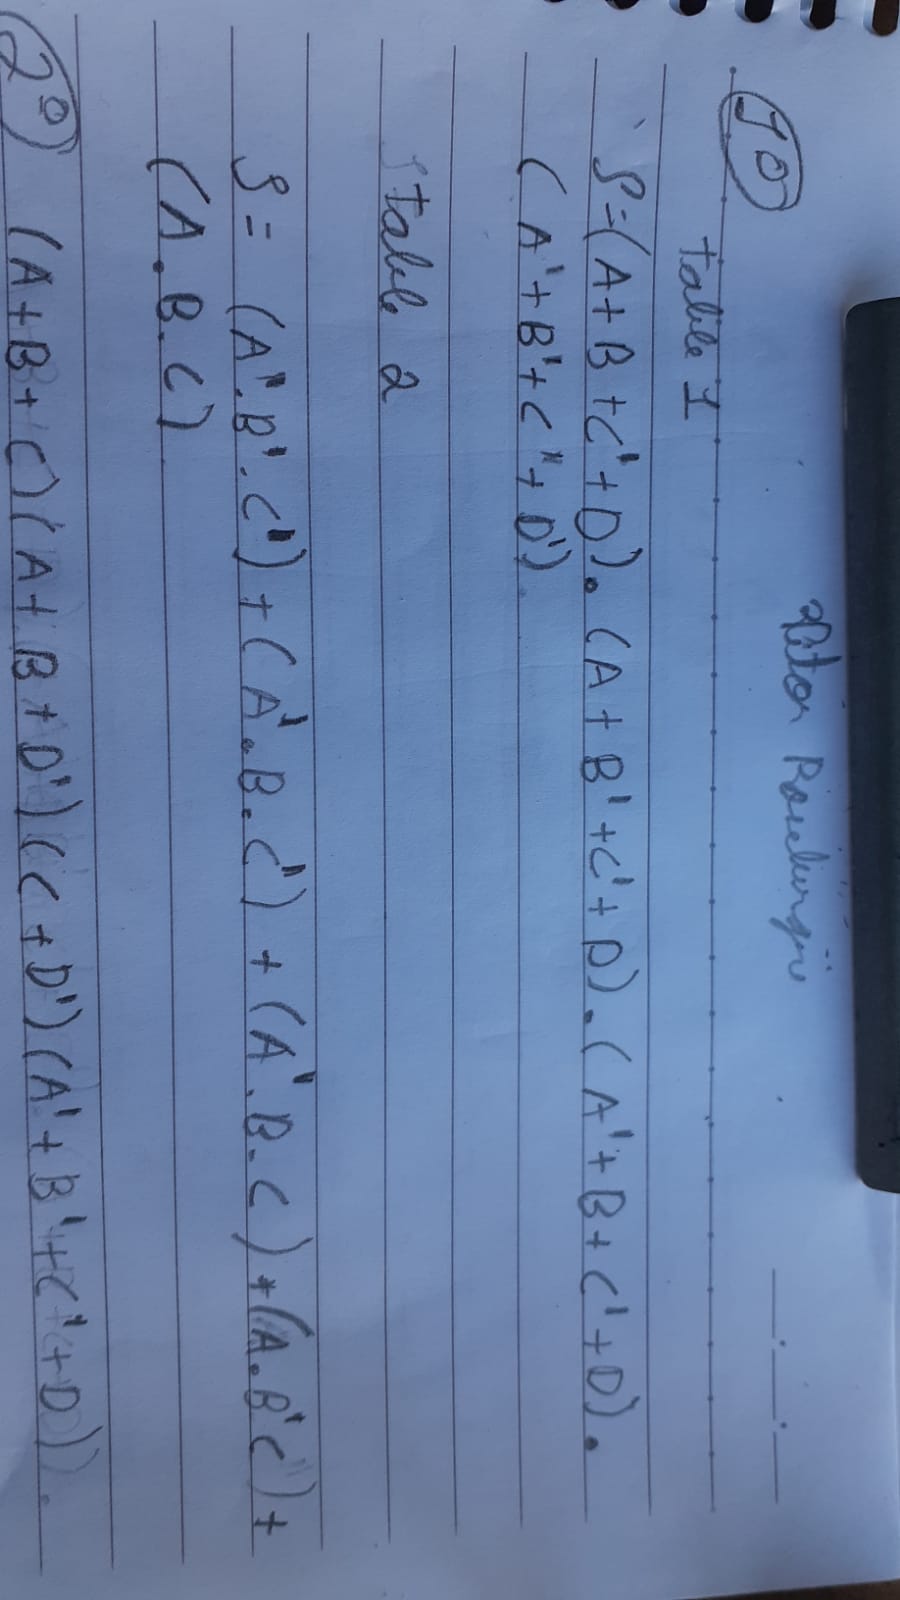 1º
table 1
S=(A+B+C'+D).(A+B'+C'+D).(A'+B+C'+D).
(A'+B'+C''+D')
table 2
S= (A''.B'.C')+(A'.B.C')+(A'.B.C)+(A.B'C')+
(A.B.C)
2º (A+B+C)(A+B+D')(C+D')(A'+B'+C'+D)